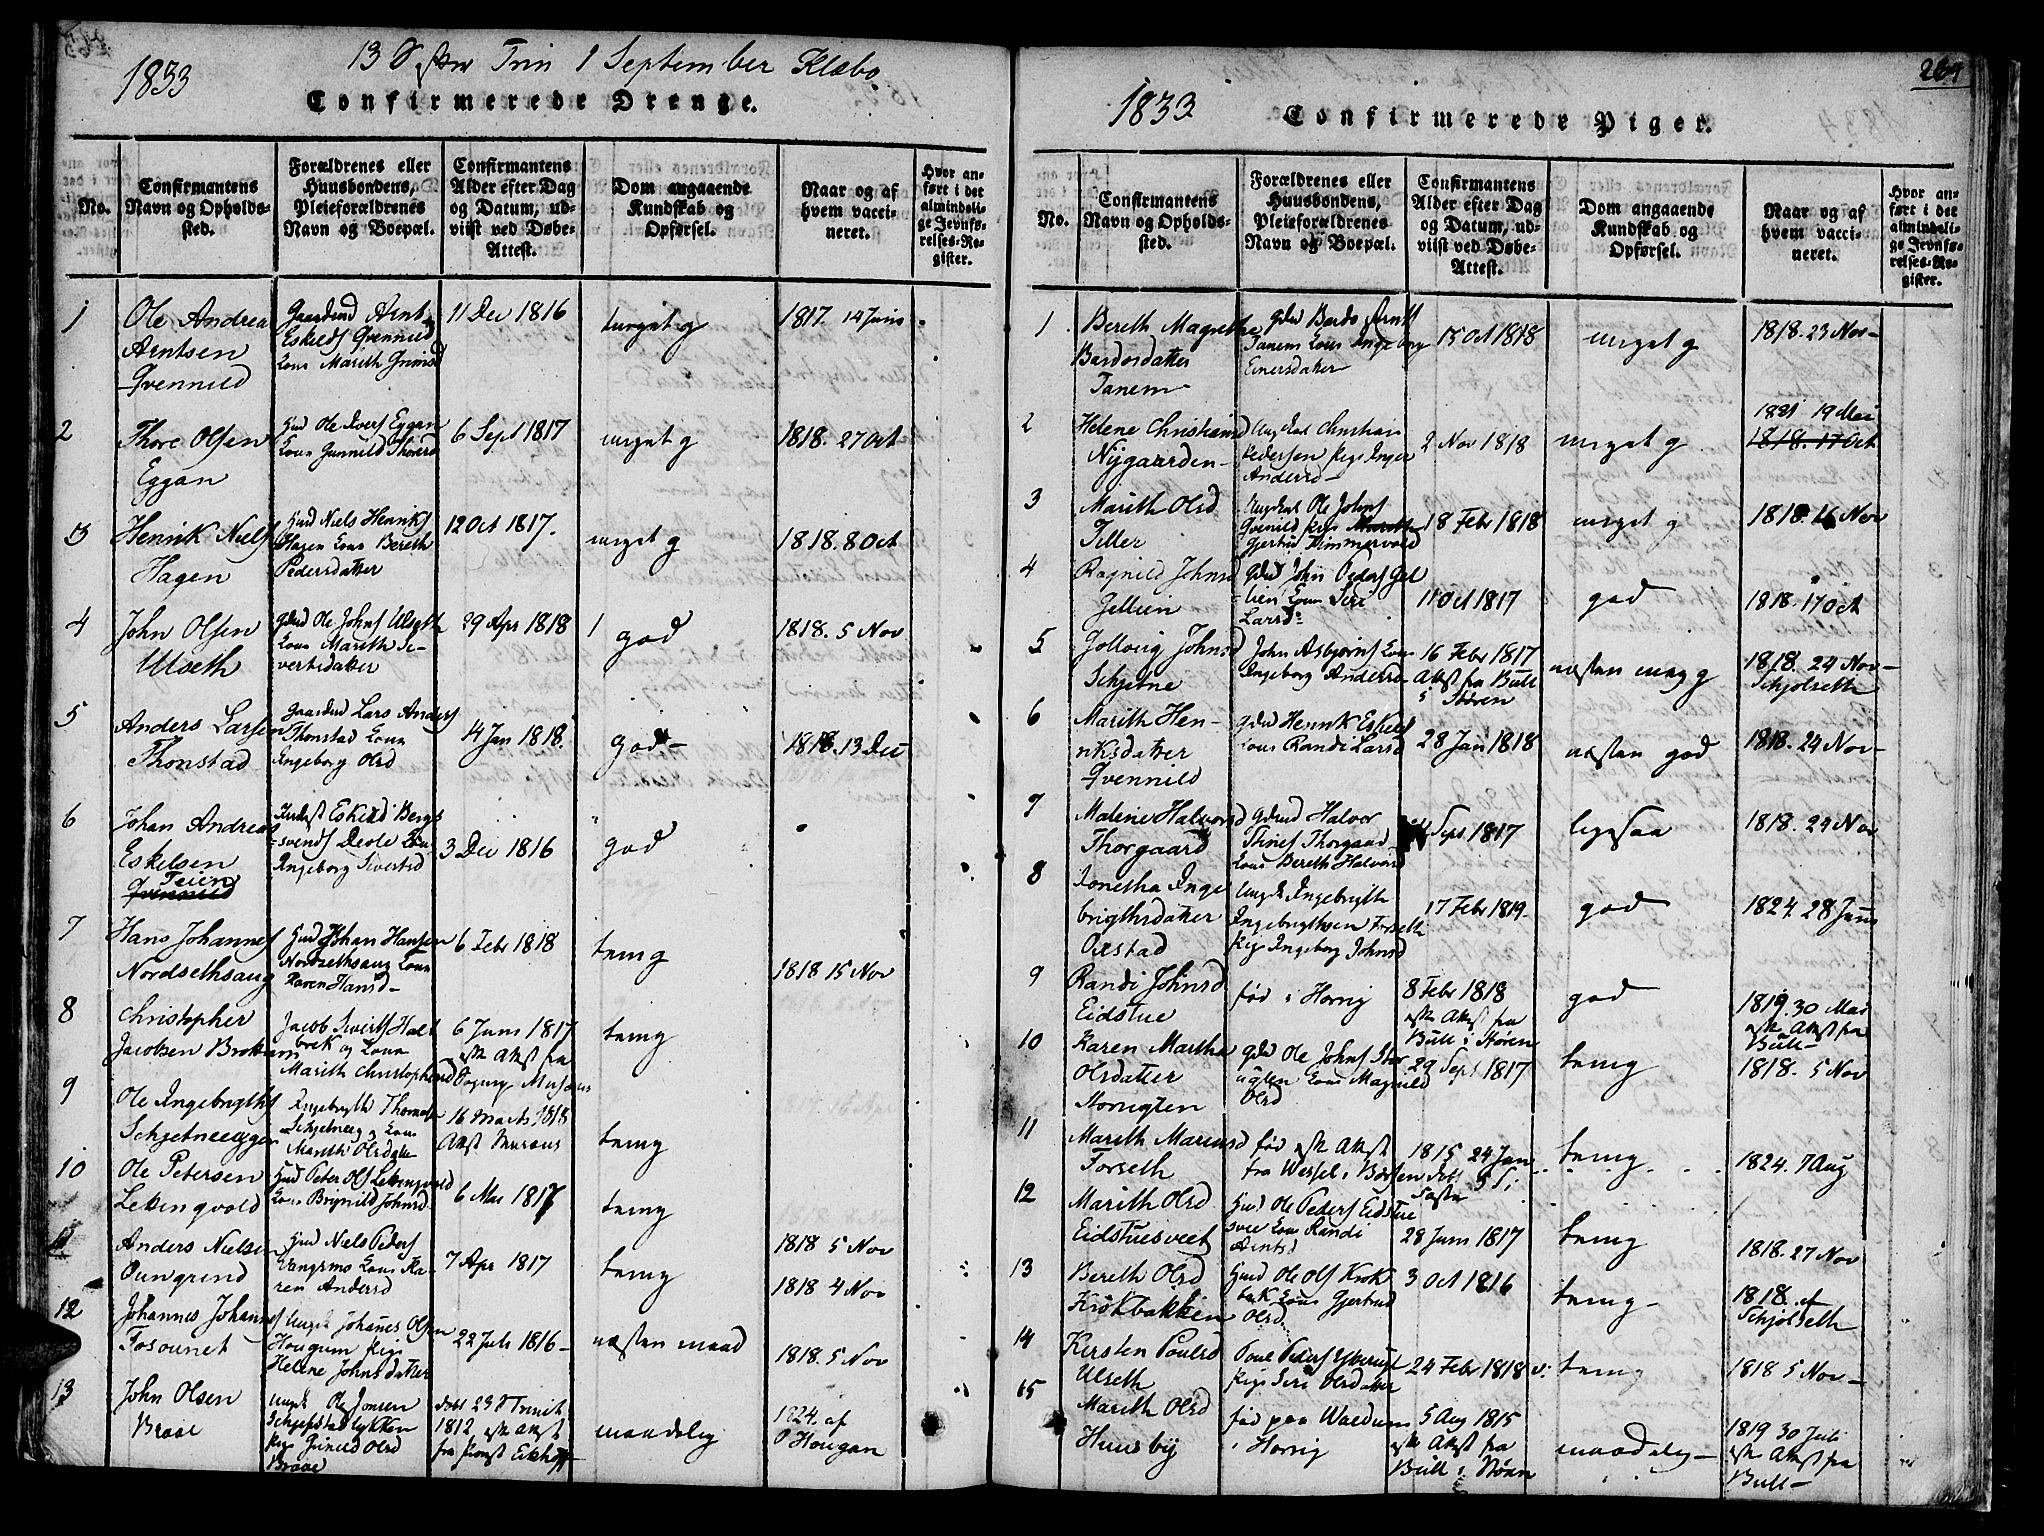 1833
13 S after Trin 1 September Klæbo
Confirmerede Drenge.
No.
Confirmantens
Navn og Opholds-
sted.
Forældrenes eller
Huusbondens,
Pleieforældrenes
Navn og Boepæl.
Confirmantens
Alder efter Dag
og Datum, ud-
viist ved Døbe-
Attest.
Dom angaaende
Kundskab og
Opførsel.
Naar og af
hvem vacci-
neret.
Hvor an-
ført i det
almindeli-
ge Jevnfø-
relses-Re-
gister.
1
Ole Andreas
Arntsen
Qvennild
Gaardmd Arnt
Eskelds Qvennild
Kone Marith Grimsd
11 Dec 1816
meget g
1817. 14 Juni
2
Thore Olsen
Eggan
Hmd Ole Ivers Eggan
Kone Gunnild Thoresd
6 Sept 1817
meget g
1818. 27 Oct
3
Henrik Niels
Hagen
Hmd Niels Henriks
Hagen Kone Bereth
Pedersdatter
12 Oct 1817.
meget g
1818. 8 Oct
4
John Olsen
Ulseth
Gdmd Ole Johns Ulseth
Kone Marith Si-
vertsdatter
29 Apr 1818
god
1818. 5 Nov
5
Anders Larsen
Thonstad
Gaardmd Lars Anders
Thonstad Kone
Ingeborg Olsd
14 Jan 1818.
god
1818. 13 Dec
6
Johan Andreas
Eskelsen
Teien
Qvennild
Eskeld Bergs
Ingeborg Sivertsd
3 Dec 1816
god
7
Hans Johannes
Nordsethsaug
Hmd Johan Hansen
Nordsethsaug Kone
Karen Hansd
6 Febr 1818
temg
1818 15 Nov
8
Christopher
Jacobsen
Jacob Siverts Halt
brek og Kone
Marith Christophersd
6 Juni 1817
eftr Attest fra
temg
9
Ole Ingebrigths
Schjetneeggen
Ingebrigth Thomas
Schjetneeg Kone
Marith Olsdatter
16 Marts 1818
Attest Musæus
temg
10
Ole Petersen
Lettingvold
Hmd Peter Ols Lettingvold
Kone Brynild Johnsd
6 Mai 1817
temg
1818 5 Nov
11
Anders Nielsen
Hmd Niels Peders
Vangsmo Kone Ka-
ren Andersd
7 Apr 1817
temg
1818 4 Nov
12
Johannes Johannes
Fosounet
Ungk Johanes Olsen
Hougum pige
Helene Johnsdatter
22 Juli 1816
næsten maad
1818. 5 Nov
13
John Olsen
Braae
Ungk Ole Jonsen
Pige Gunild Olsd
Braae
døbt 23 S Trinit
1812, eftr Attest
fra
maadelig
1824. af
O Hougan
1833
264
Confirmerede Piger.
No.
Confirmantens
Navn og Opholds-
sted.
Forældrenes eller
Huusbondens,
Pleieforældrenes
Navn og Boepæl.
Confirmantens
Alder efter Dag
og Datum, ud-
viist ved Døbe-
Attest.
Dom angaaende
Kundskab og
Opførsel.
Naar og af
hvem vacci-
neret.
Hvor an-
ført i det
almindeli-
ge Jevnfø-
relses-Re-
gister.
1
Bereth Magrethe
Bardosdatter
Tanem
Gdmd Bardo Arnts
Tanem Kone Ingeborg
Einersdatter
15 Oct 1818
meget g
1818. 23 Nov
2
Helene Christiansd
Nygaarden
Ungkal Christian
Pedersen pige Inger
Andersd
2 Nov 1818
meget g
1821 19 Mai
1818. 17 Oct
3
Marith Olsd
Tiller
Ungkal Ole Johns
Qvenild pige
Gjertrud Dimmervold
18 Febr 1818
meget g
1818. 16 Nov
4
Ragnild Johnsd
Gellein
Gdmd John Peders Gel
lien Kone Siri
Larsd
11 Oct 1817
god
1818. 17 Oct
5
Solveig Johnsd
Schjetne
John Asbjørns Kone
Ingeborg Andersd
16 Febr 1817
Attest fra Bull
i Støren
næsten meg g
1818. 24 Nov
Schjolseth
6
Marith Hen-
riksdatter
Qvennild
Gdmd Henrik Eskels
Kone Randi Larsd
28 Jan 1818
næsten god
1818. 24 Nov
7
Malene Halvorsd
Thorgaard
Gdmd Halvor
Stines Thorgaard
Kone Bereth Halvorsd
Sept 1817
ligesaa
1818. 24 Nov
8
Jonetha Inge
brigthsdatter
Oxstad
Ungk Ingebrigth
Ingebrigthsen Forseth
Pig Ingeborg Johnsd
17 Febr 1819.
god
1824. 28 Juni
9
Randi Johnsd
Eidstue
fød i Horrig
8 Febr 1818
eftr Attest fra
Bull i Støren
god
1819. 30 Mai
eftr Attest fra
Bull
10
Karen Martha
Olsdatter
Storugten
Gdmd Ole Johns Stor
ugten Kone Magnild
Olsd
29 Sept 1817
temg
1818. 5 Nov
11
Marith Mariusd
Forseth
fød eftr Attest
fra Wessel i Børsen
1815 24 Jan
temg
1824. 7 Aug
12
Marith Olsd
Eidstuesveet
Hmd Ole Peders Eidstue
svee Kone Randi
Arntsd
28 Juni 1817
temg
1818. 27 Nov
13
Bereth Olsd
Krokbakken
Hmd Ole Ols Krok
bak Kone Gjertrud
Olsd
3 Oct 1816
temg
1818. af
Schjolseth
14
Kersten Poulsd
Ulseth
Poul Peders
Pige Siri Olsdatter
24 Febr 1818
temg
1818 5 Nov
15
Marith Olsd
Huusby
fød paa Waldum
i Horrig
5 Aug 1815
eftr Attest fra
Bull i Støren
maadelig
1819 30 Juli
eftr Attest fra
Bull